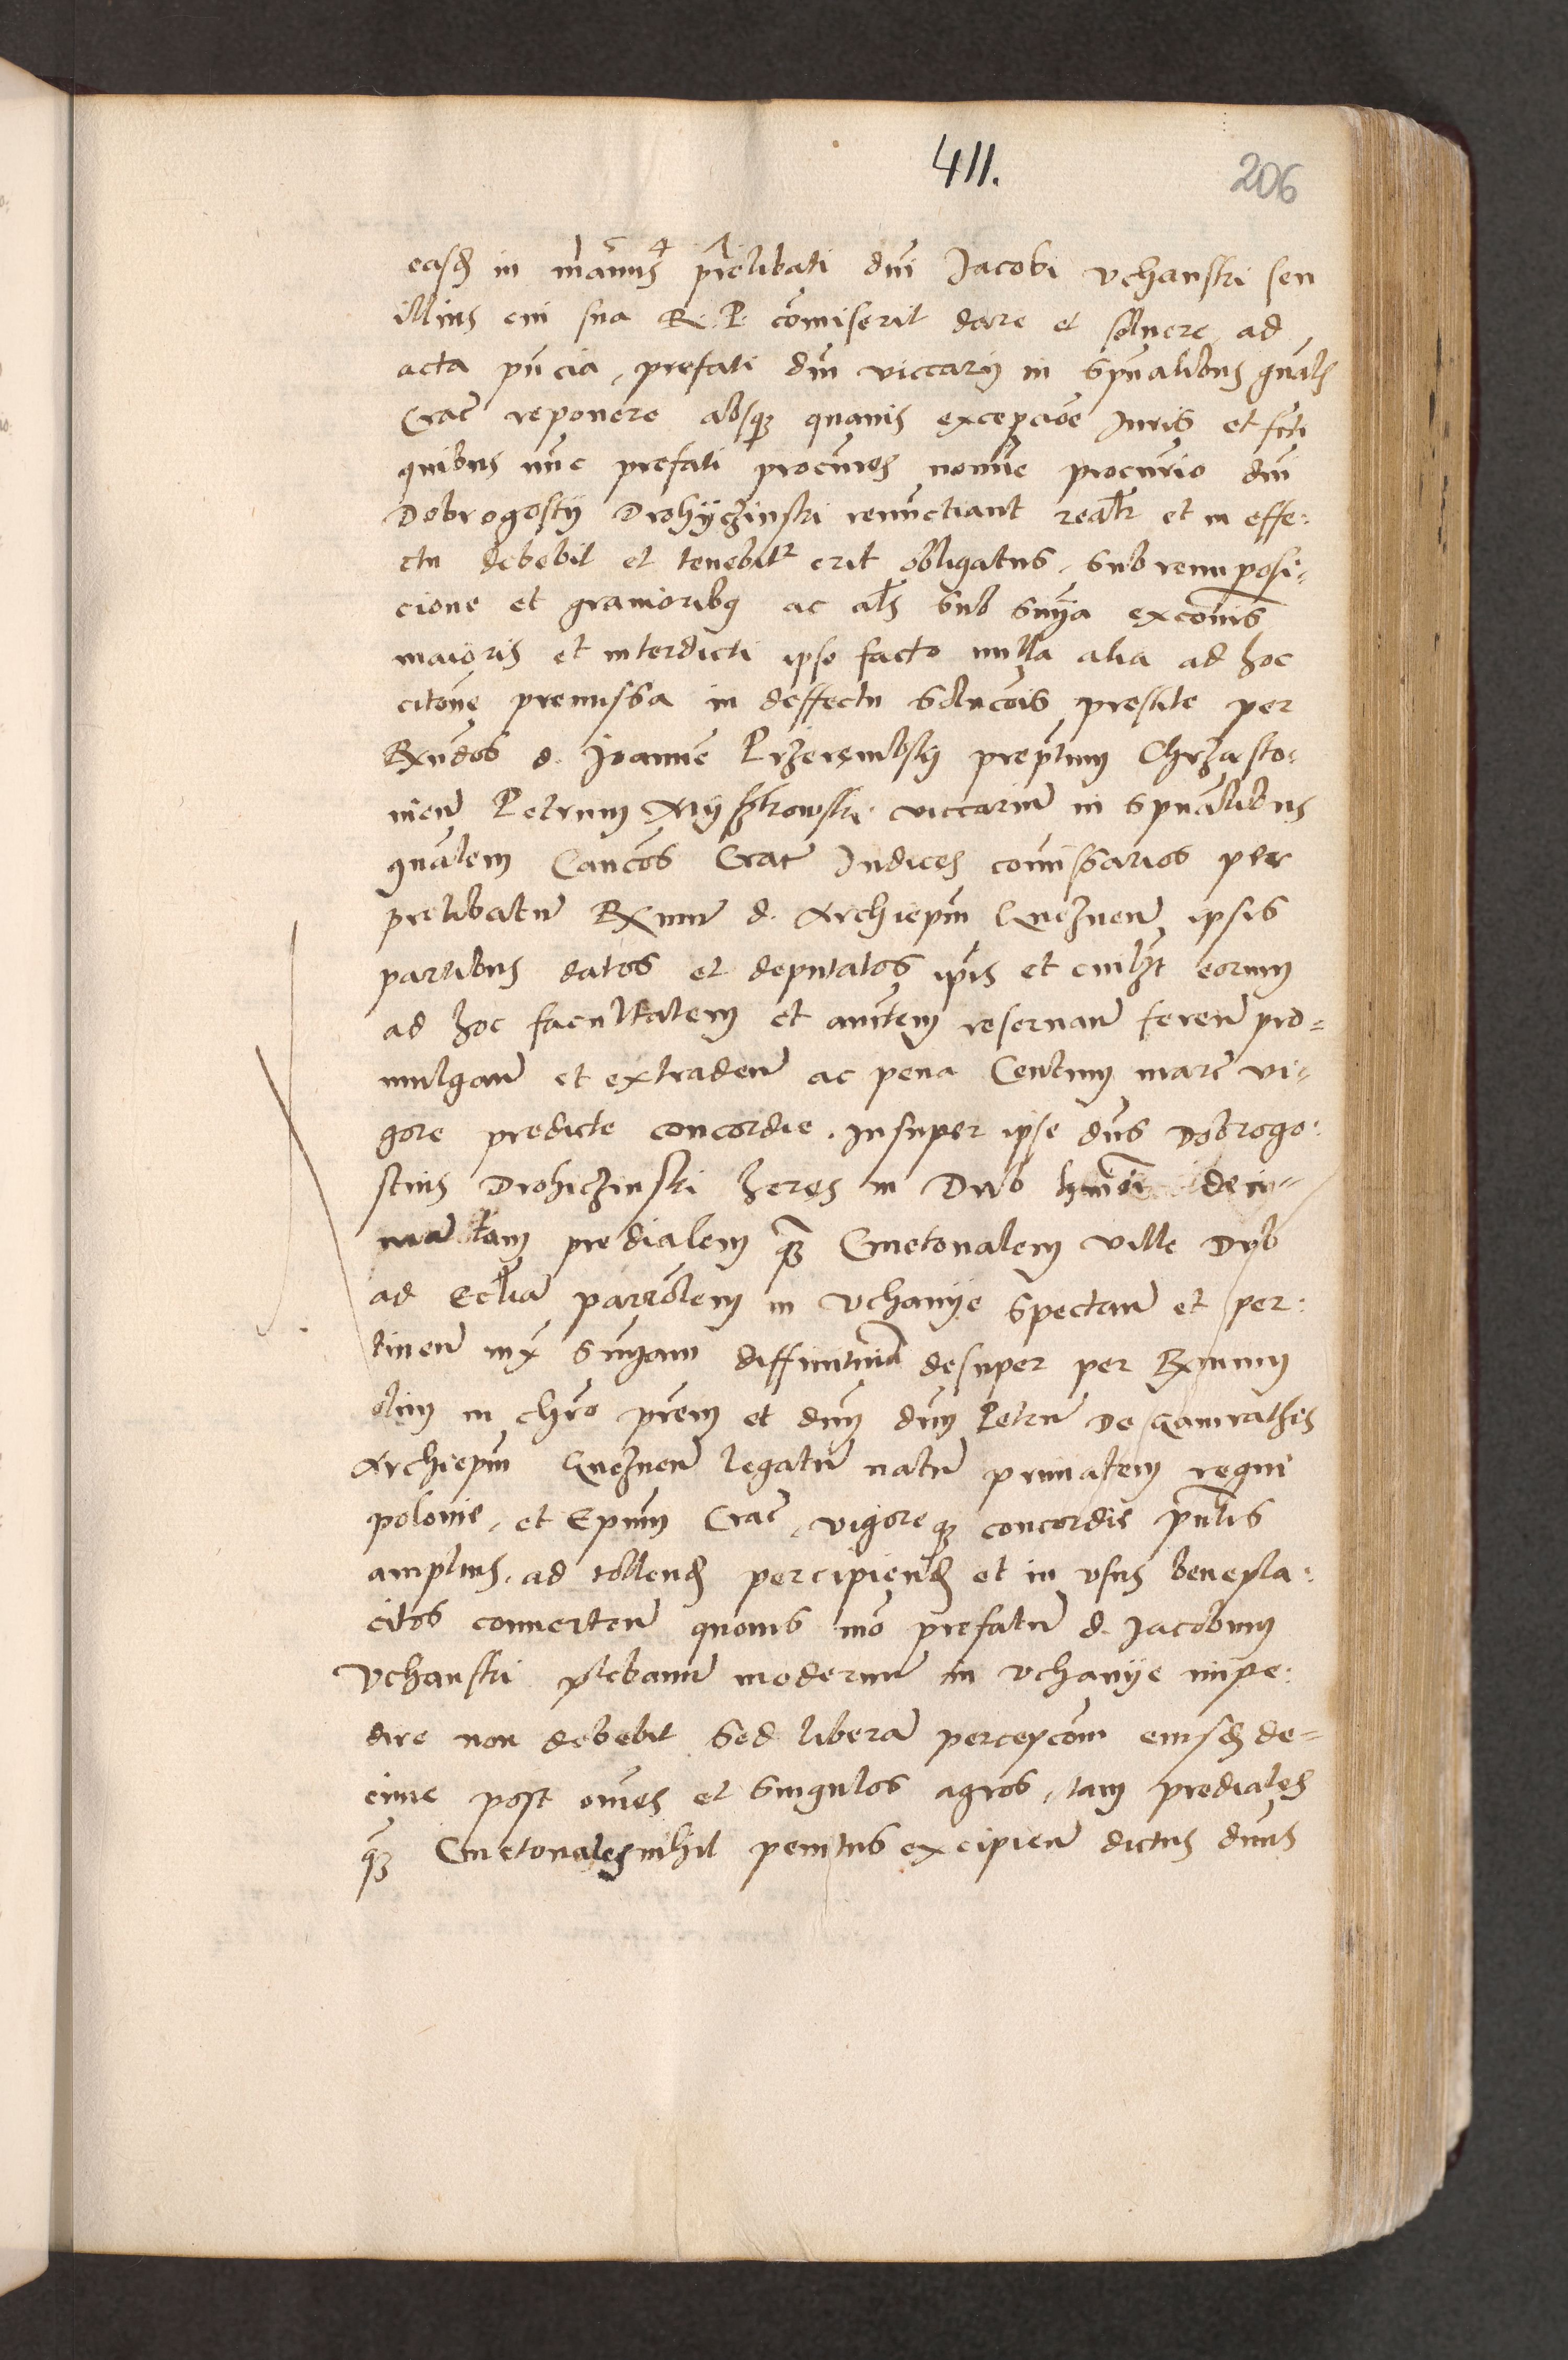 411.
206
easd in manus prelibati dni Jacobi Vchanski seu
illius cui sua R. P. comiserit dare et soluere ad
acta pncia, prefati dni viccarij in spualibus gnalis
Crac reponere absq quauis excepcioe Juris et fcti
quibus nunc prefati procures nomine procurio dni
Dobrogostij Drohyczinski renunctiant realr et in effe:
ctu debebit et tenebitr erit obligatus, sub
cione et grauioribq ac als sub snia excois
maioris et interdicti ipso facto nulla alia ad hoc
citone premissa in deffectu solucois prestite per
Rxndos d. Joanne Przerembsky preptum Chrzasto:
nien Petrum Myszkowski viccariu in spualibus
gnalem Cancos Crac Judices comissarios per
prelibatu Rxmu d. Archiepm Gneznen ipsis
partibus datos et deputatos ipis et cuilzt eorum
ad hoc facultatem et auctem reseruan feren pro=
mulgan et extraden ac pena Centum marc vi=
gore predicte concordie. Insuper ipse dns Dobrogo:
stius Drohiczinski heres in Dub hmoi deci=
mam tam predialem q Cmetonalem ville Dub
ad Eccliam parrolem in Vchanye spectan et per:
tinen iux sniam diffinitiua desuper per Rxmum
olim in chro prem et dnm dnm Petru de Gamrathes
Archiepm Gneznen legatu natu primatem regni
polonie, et Epum Crac, vigoreq concordie pntis
amplius, ad tollend percipiend et in vsus benepla:
citos conuerten quouis mo prefatu d. Jacobum
Vchanski plebanu modernu in Vchanye impe:
dire non debebit sed libera percepcom eiusd de=
cime post omes et singulos agros, tam prediales
q Cmetonales nihil penitus excipien dictus dnus